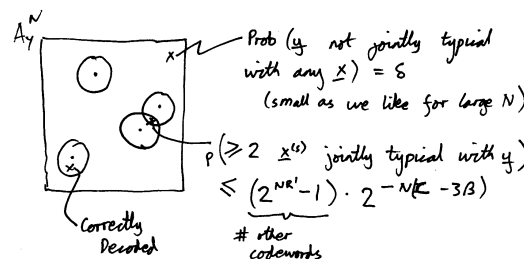 A_Y^N
Prob (y not jointly typical
with any x) = δ
(small as we like for large N)
P(≥ 2 x^(s) jointly typical with y)
≤ (2^{NR'} - 1) · 2^{-N(C - 3β)}
# other
codewords
Correctly
Decoded